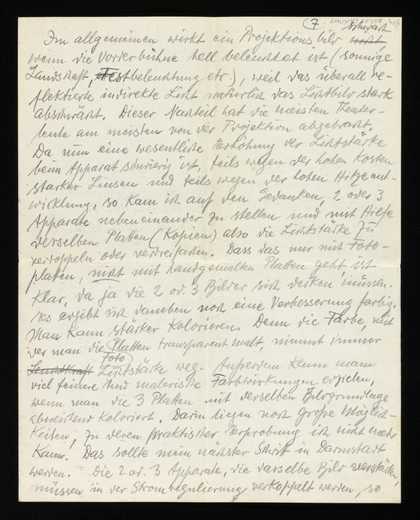 7
Im allgemeinen wirkt ein Projektionsbild schwach
wenn die Vorderbühne hell beleuchtet ist (sonnige
Landschaft, Festbeleuchtung etc), weil das überall re-
flektierte indirekte Licht natürlich das Lichtbild stark
abschwächt. Dieser Nachteil hat die meisten Theater-
leute am meisten von der Projektion abgebracht.
Da nun eine wesentliche Erhöhung der Lichtstärke
beim Apparat schwierig ist, teils wegen der hohen Kosten
starker Linsen und teils wegen der hohen Hitzeent-
wicklung, so kam ich auf den Gedanken, 2 oder 3
Apparate nebeneinander zu stellen und mit Hilfe
derselben Platten (Kopien) also die Lichtstärke zu
verdoppeln oder verdreifachen. Dass das nur mit Foto-
platten, nicht mit handgemalten Platten geht ist
klar, da ja die 2 od. 3 Bilder sich decken müssen.
Es ergibt sich daneben noch eine Verbesserung farbig.
Man kann stärker kolorieren. Denn die Farbe, auch
wer man die Platten transparent malt, nimmt immer
(Foto)
Lichtstärke weg. Ausserdem kann man
viel feinere und malerische Farbwirkungen erzielen,
wenn man die 3 Platten mit derselben Fotogrundlage
abweichend koloriert. Darin liegen noch große Möglich-
keiten, zu deren praktischer Erprobung ich nicht mehr
kam. Das sollte mein nächster Schritt in Darmstadt
werden. Die 2 od. 3 Apparate, die dasselbe Bild verstärken,
müssen in der Stromregulierung verkoppelt werden, so